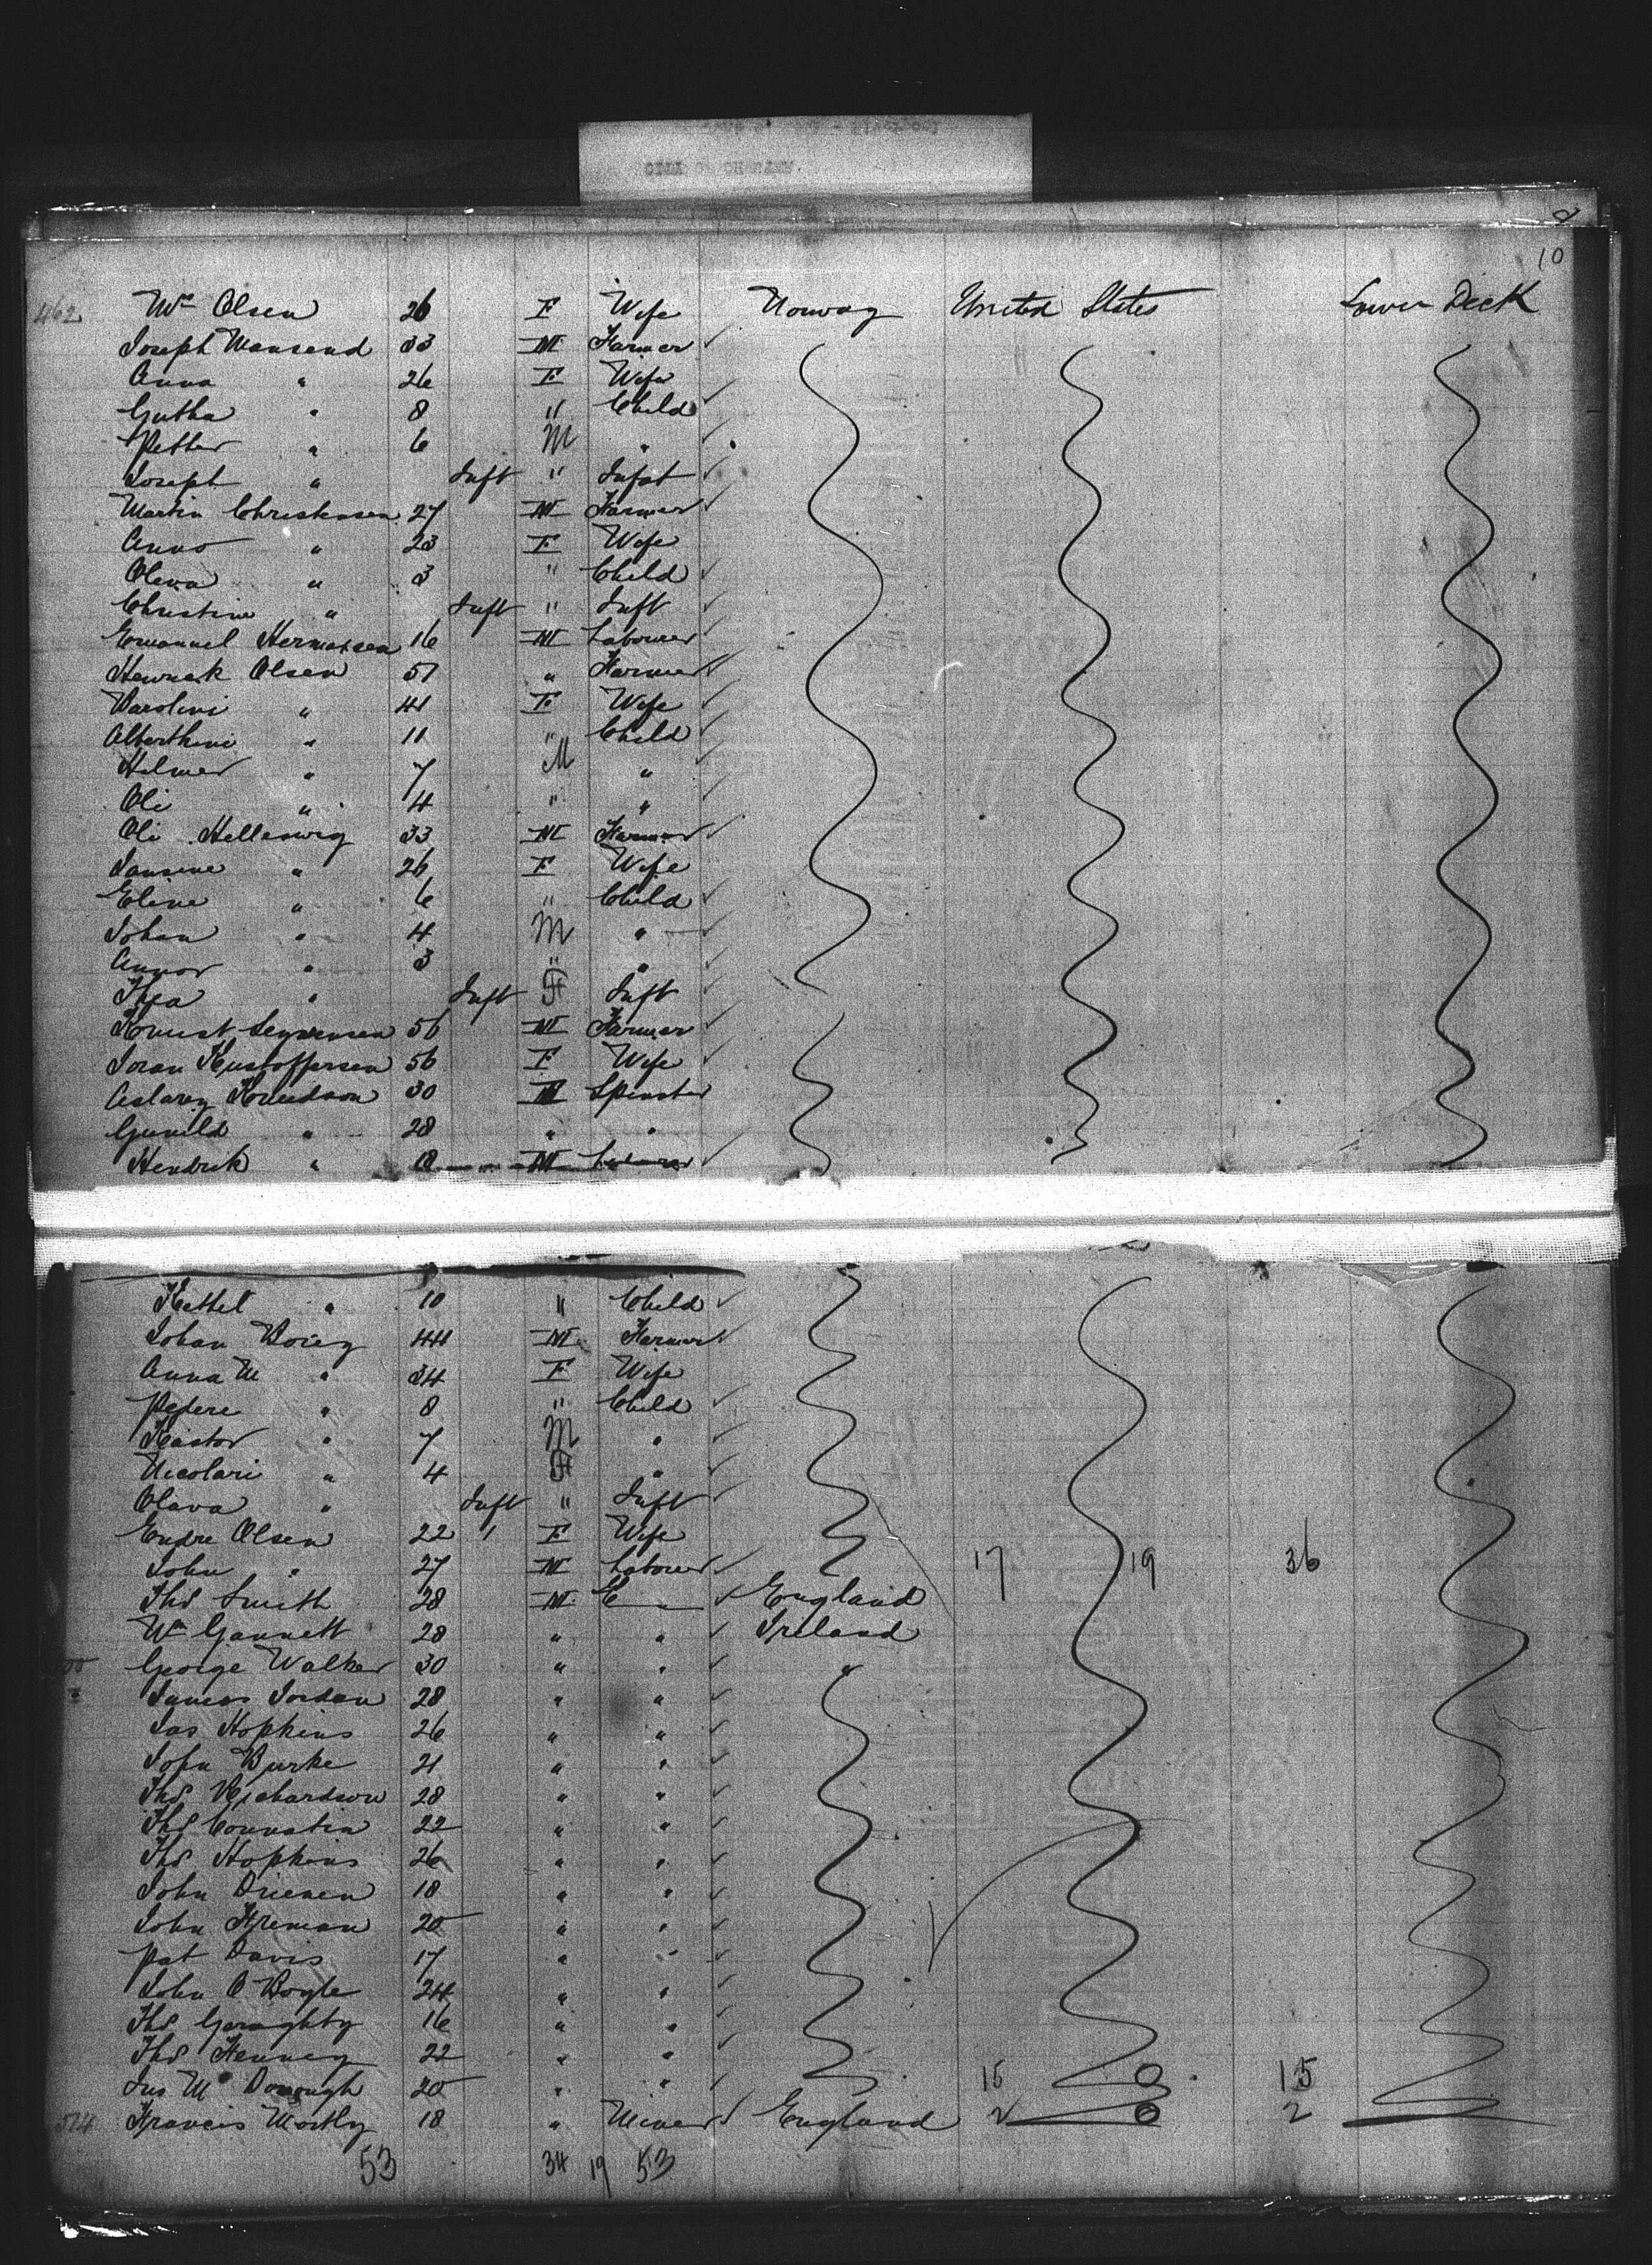 10
462 Wm Olsen 26 F Wife Norway United States Lower Deck
Joseph Mansend 33 M Farmer
Anna " 26 F Wife
Gutha " 8 " Child
Petter " 6 M "
Joseph " Inft " Infat
Martin Christensen 27 M Farmer
Anna " 23 F Wife
Oleva " 3 " Child
Christine " Inft " Inft
Emanuel Hermansen 16 M Labourer
Henrick Olsen 51 " Farmer
Karolini " 41 F Wife
Alberthini " 11 " Child
Helmer " 7 M "
Oli " 4 " "
Oli Helleswig 33 M Farmer
Jansine " 26 F Wife
Eline " 6 " Child
Johan " 4 M "
" 3 " "
Thea " Inft F Inft
56 M Farmer
Kristoffersen 56 F Wife
Knudson 30 Spinster
Gunild " 28 " "
Hendrik " 18 M Labourer
Kettel " 10 " Child
Johan 44 M Farmer
Anna M " 34 F Wife
Pedere " 8 " Child
Kastor " 7 M "
Nicolari " 4 F "
Olava " Inft " Inft
Endre Olsen 22 1 F Wife
John " 27 M Labourer 17 19 36
Thos Smith 28 M England
Wm Gannett 28 " " Ireland
George Walker 30 " " "
James Jordan 28 " "
Jas Hopkins 26 " "
John Burke 21 " "
Thos Richardson 28 " "
Thos 22 " "
Thos Hopkins 26 " "
John 18 " "
John 20 " "
Pat Davis 17 " "
John O'Boyle 24 " "
Thos Geraghty 16 " "
Thos 22 " "
Jas McDonough 20 " " 15 0 15
514 Francis 18 " Miner England 2 0 2
53 34 19 53